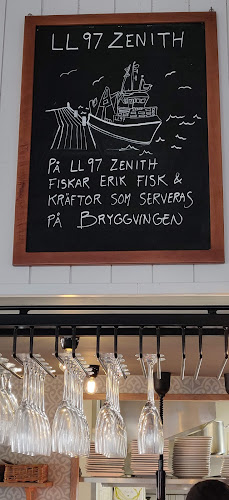 LL 97 ZENITH
PÅ LL 97 ZENITH
FISKAR ERIK FISK &
KRÄFTOR SOM SERVERAS
PÅ BRYGGVINGEN